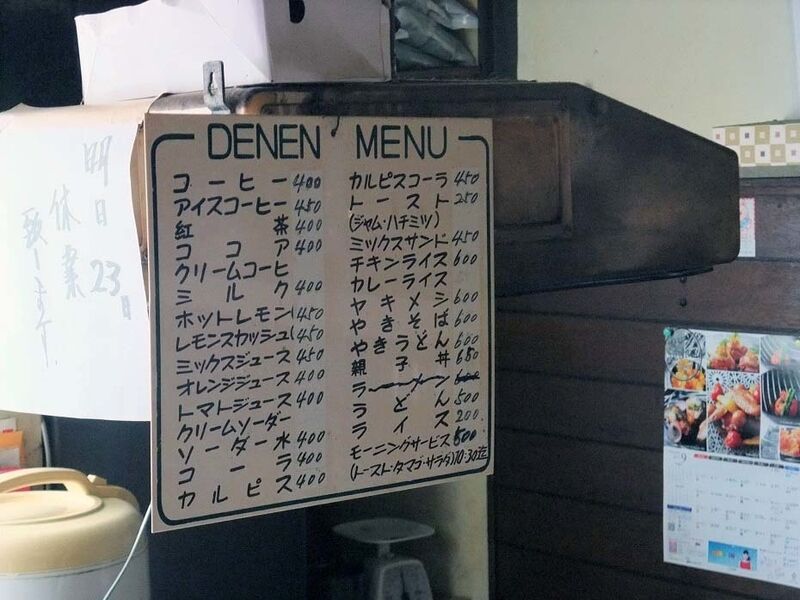 明日23日
休業
致します。
DENEN MENU
コーヒー 400
アイスコーヒー 450
紅茶 400
ココア 400
クリームコーヒ
ミルク 400
ホットレモン 450
レモンスカッシュ 450
ミックスジュース 450
オレンジジュース 400
トマトジュース 400
クリームソーダー
ソーダー水 400
コーラ 400
カルピス 400
カルピスコーラ 450
トースト 250
(ジャム・ハチミツ)
ミックスサンド 450
チキンライス 600
カレーライス
ヤキメシ 600
やきそば 600
やきうどん 600
親子丼 650
ラーメン 600
うどん 500
ライス 200
モーニングサービス 500
(トースト・タマゴ・サラダ) 10:30迄
9